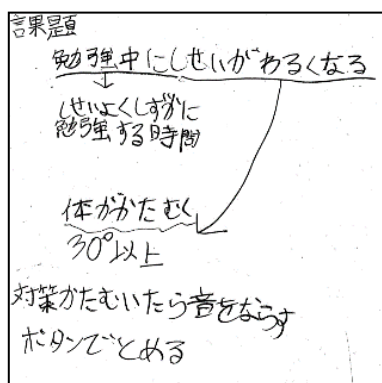 課題
勉強中にしせいがわるくなる
しせいよくしずかに
勉強する時間
体がかたむく
30°以上
対策かたむいたら音をならす
ボタンでとめる